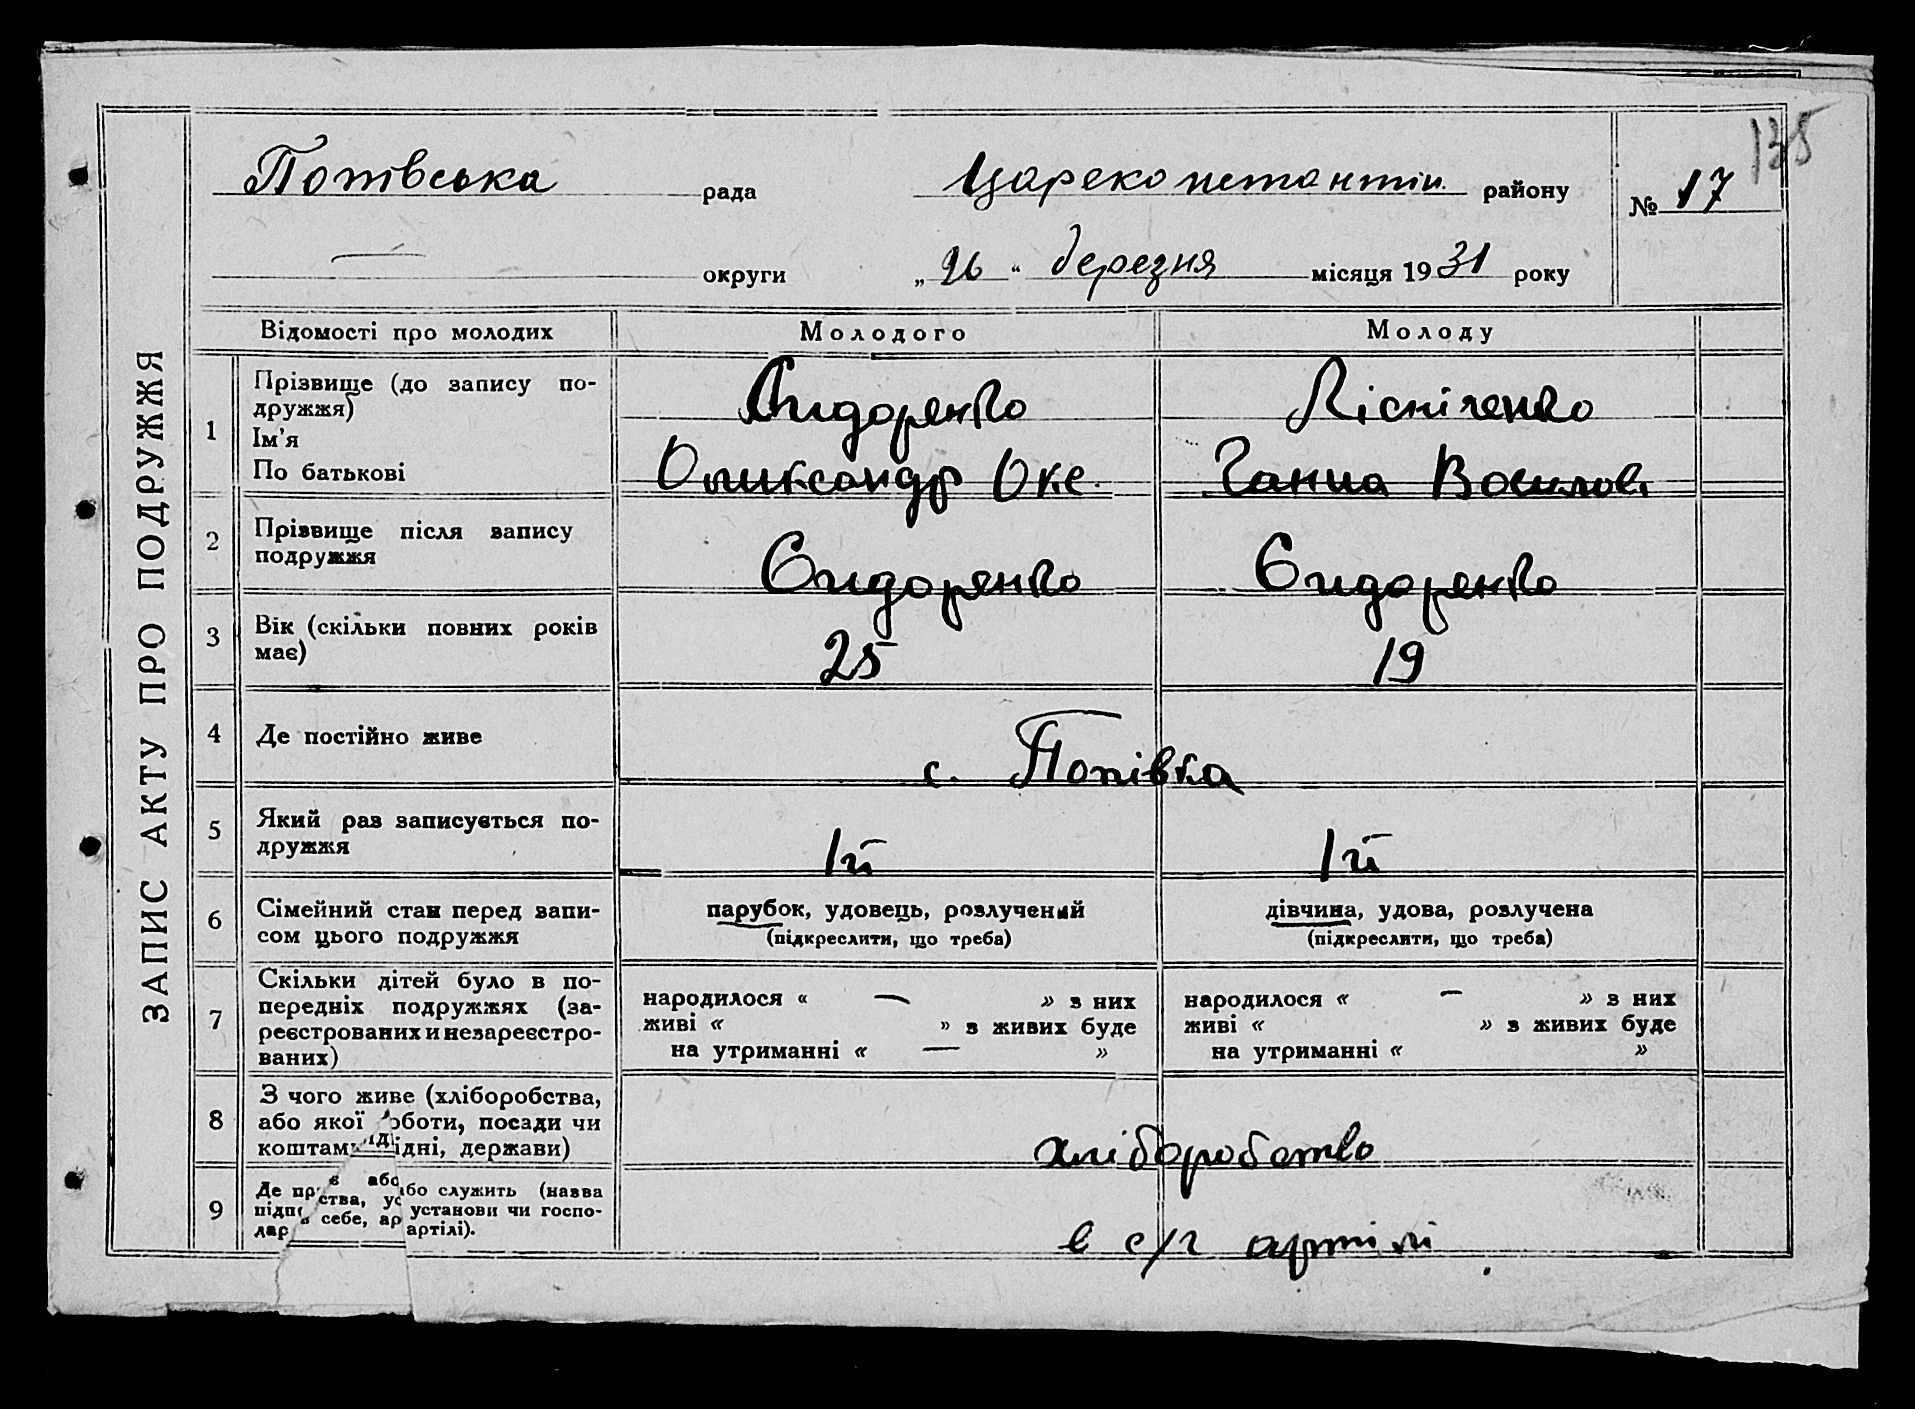 135
Попівська рада Царекопстантін. району № 17
— округи „26“ березня місяця 1931 року
ЗАПИС АКТУ ПРО ПОДРУЖЖЯ
Відомості про молодих Молодого Молоду
1 Прізвище (до запису по-
дружжя) Сидоренко Лісніченко
Ім'я
По батькові Олександр Оке. Ганна Василов.
2 Прізвище після запису
подружжя Сидоренко Сидоренко
3 Вік (скільки повних років
має) 25 19
4 Де постійно живе с. Попівка
5 Який раз записується по-
дружжя 1й 1й
6 Сімейний стан перед запи-
сом цього подружжя
парубок, удовець, розлучений дівчина, удова, розлучена
(підкреслити, що треба) (підкреслити, що треба)
7 Скільки дітей було в по-
передніх подружжях (за-
реєстрованих и незареєстро-
ваних)
народилося « — » з них народилося « — » з них
живі « » з живих буде живі « » з живих буде
на утриманні « — » на утриманні « »
8 З чого живе (хліборобства,
або якої роботи, посади чи
коштам рідні, держави) хліборобство
9 Де або служить (назва
установи чи госпо-
себе, артілі). в с/г артілі